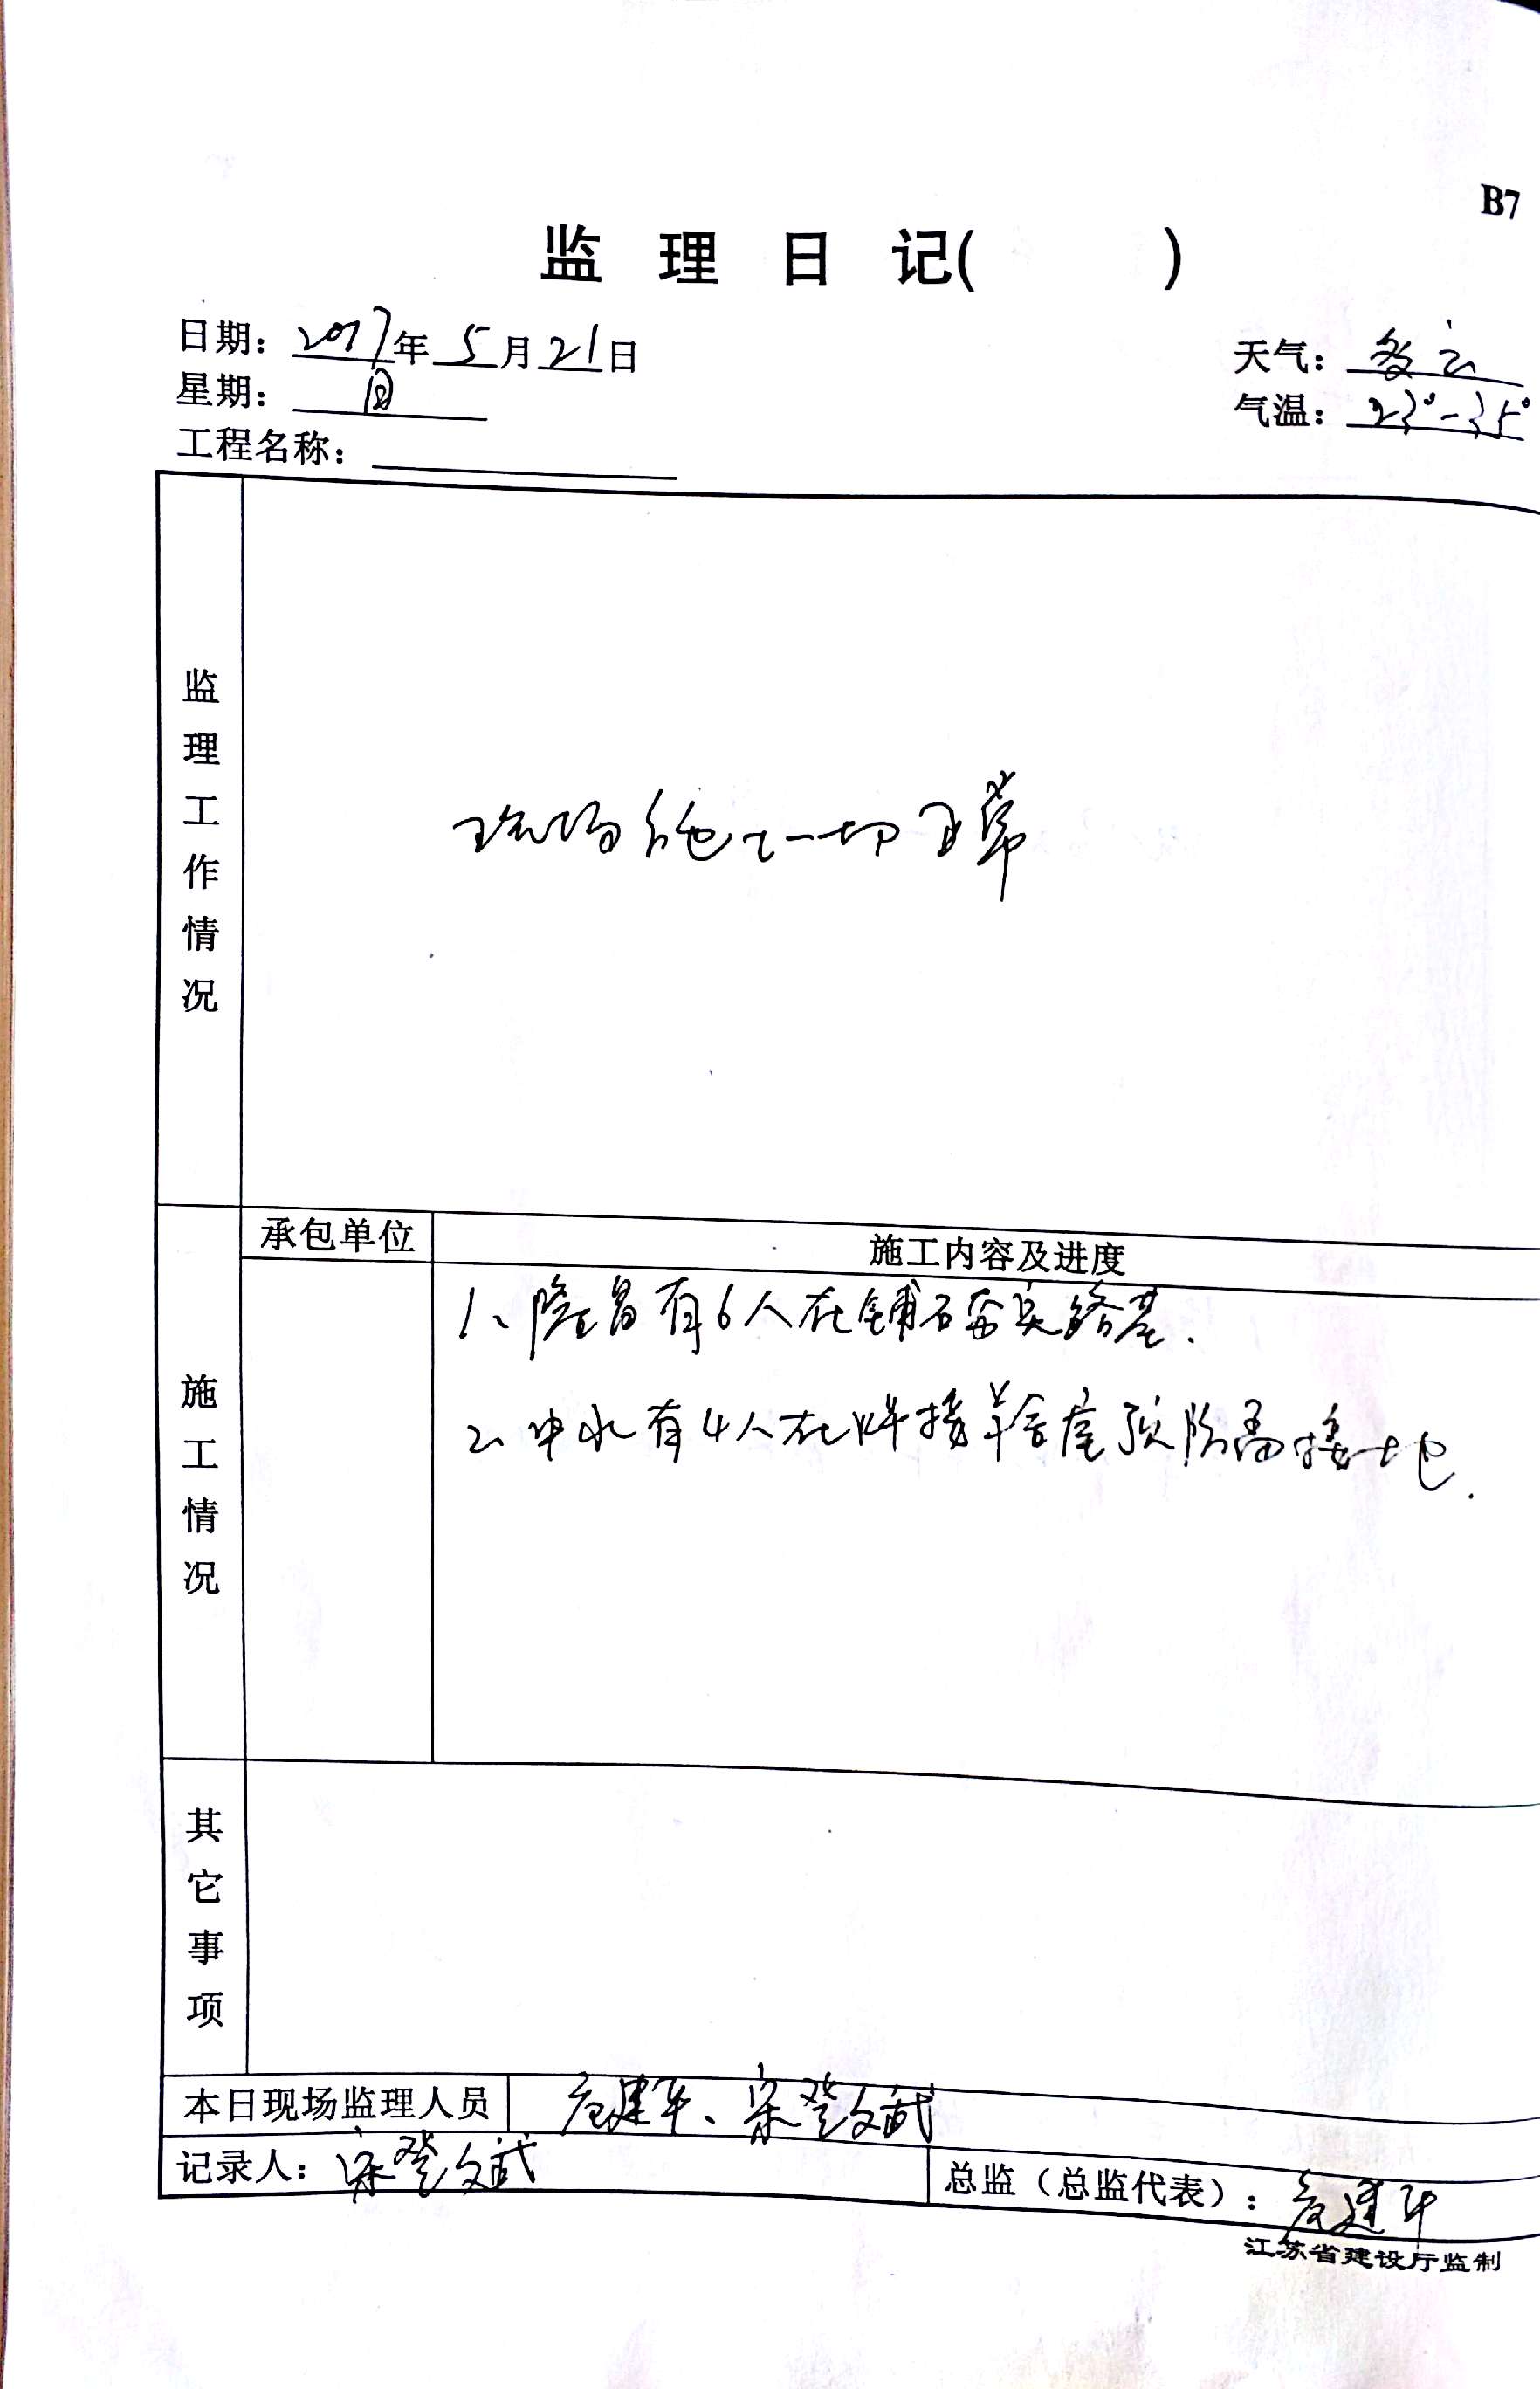 B7
监 理 日 记( )
日期：2017年5月21日
天气：多云
星期：日
气温：23°-35°
工程名称：
监理工作情况
现场施工一切正常
施工情况
承包单位
施工内容及进度
1、隆昌有6人在铺石夯实路基.
2、中水有4人在焊接羊舍屋顶防雷接地.
其它事项
本日现场监理人员
建军、宋登文武
记录人：宋登文武
总监（总监代表）：建军
江苏省建设厅监制